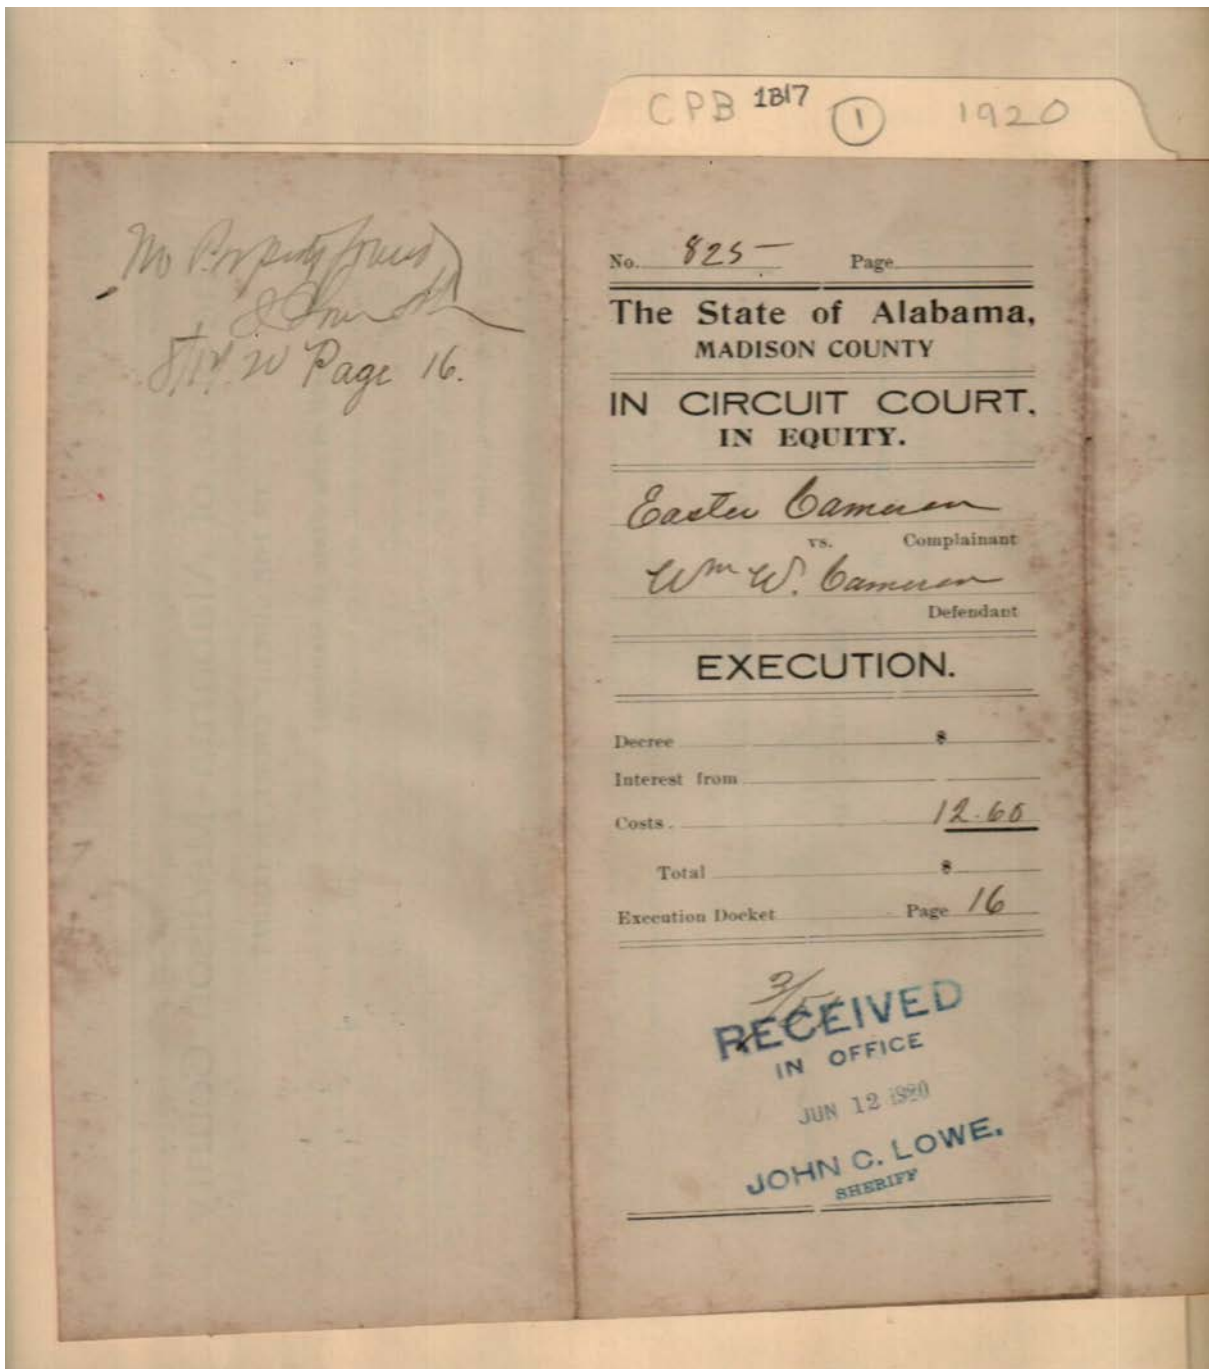 CPB 1B17 1 1920
No Property found
Page 16.
No. 825 Page
The State of Alabama,
MADISON COUNTY
IN CIRCUIT COURT,
IN EQUITY.
Easter Cameron
vs. Complainant
Wm W. Cameron
Defendant
EXECUTION.
Decree $
Interest from
Costs. 12.60
Total $
Execution Docket Page 16
RECEIVED
IN OFFICE
JUN 12 1920
JOHN C. LOWE.
SHERIFF